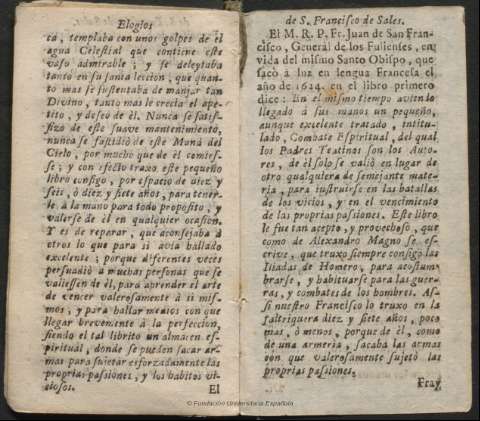 Elogios
ca, templaba con unos golpes de el
agua Celestial que contiene este
vaso admirable; y se deleytaba
tanto en su santa leccion; que quan-
to mas se sustentaba de manjar tan
Divino, tanto mas le crecia el ape-
tito, y deseo de èl. Nunca se satis-
fizo de este suave mantenimiento,
nunca se fastidiò de este Manà del
Cielo, por mucho que de èl comies-
se; y con efecto traxo este pequeño
libro consigo, por espacio de diez y
seis, ò diez y siete años, para tener-
le à la mano para todo proposito, y
valerse de èl en qualquier ocasion.
Y es de reparar, que aconsejaba à
otros lo que para si avia hallado
excelente; porque diferentes veces
persuadiò à muchas personas que se
valiessen de èl, para aprender el arte
de vencer valerosamente à si mis-
mos, y para hallar medios con que
llegar brevemente à la perfeccion,
siendo el tal librito un almacen es-
piritual, donde se pueden sacar ar-
mas para sujetar esforzadamente las
proprias passiones, y los habitos vi-
ciosos.
El
de S. Francisco de Sales.
El M. R. P. Fr. Juan de San Fran-
cisco, General de los Fulienses, en
vida del mismo Santo Obispo, que
sacò à luz en lengua Francesa el
año de 1624. en el libro primero
dice: En el mismo tiempo aviendo
llegado à sus manos un pequeño,
aunque excelente tratado, intitu-
lado, Combate Espiritual, del qual
los Padres Teatinos son los Auto-
res, de èl solo se valiò en lugar de
otro qualquiera de semejante mate-
ria, para instruirse en las batallas
de los vicios, y en el vencimiento
de las proprias passiones. Este libro
le fue tan acepto, y provechoso, que
como de Alexandro Magno se es-
crive, que truxo siempre consigo las
Iliadas de Homero, para acostum-
brarse, y habituarse para las guer-
ras, y combates de los hombres. As-
si nuestro Francisco lo truxo en la
faltriquera diez y siete años, poco
mas, ò menos, porque de èl, como
de una armeria, sacaba las armas
con que valerosamente sujetò las
proprias passiones.
Fray
© Fundación Universitaria Española